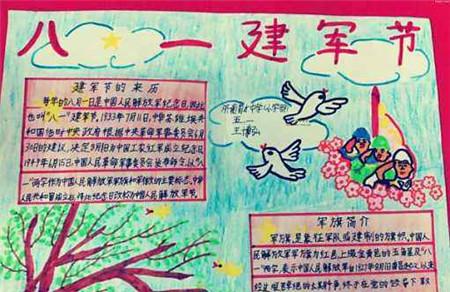 八一建军节
建军节的来历
每年的八月一日是中国人民解放军纪念日,因此
也叫“八一”建军节。1933年7月11日,中华苏维埃共
和国临时中央政府根据中央革命军事委员会6月
30日的建议,决定8月1日为中国工农红军成立纪念日
1949年6月15日,中国人民革命军事委员会发布命令,以“八
一”两字作为中国人民解放军军旗和军徽的主要标志。中华
人民共和国成立后,将此纪念日改称为中国人民解放军建军节
五
军旗简介
军旗,是象征军队或建制的旗帜,中国人
民解放军军旗为红色,上缀金黄色的五角星及“八一
两字,表示中国人民解放军自1927年8月1日南昌起义以来